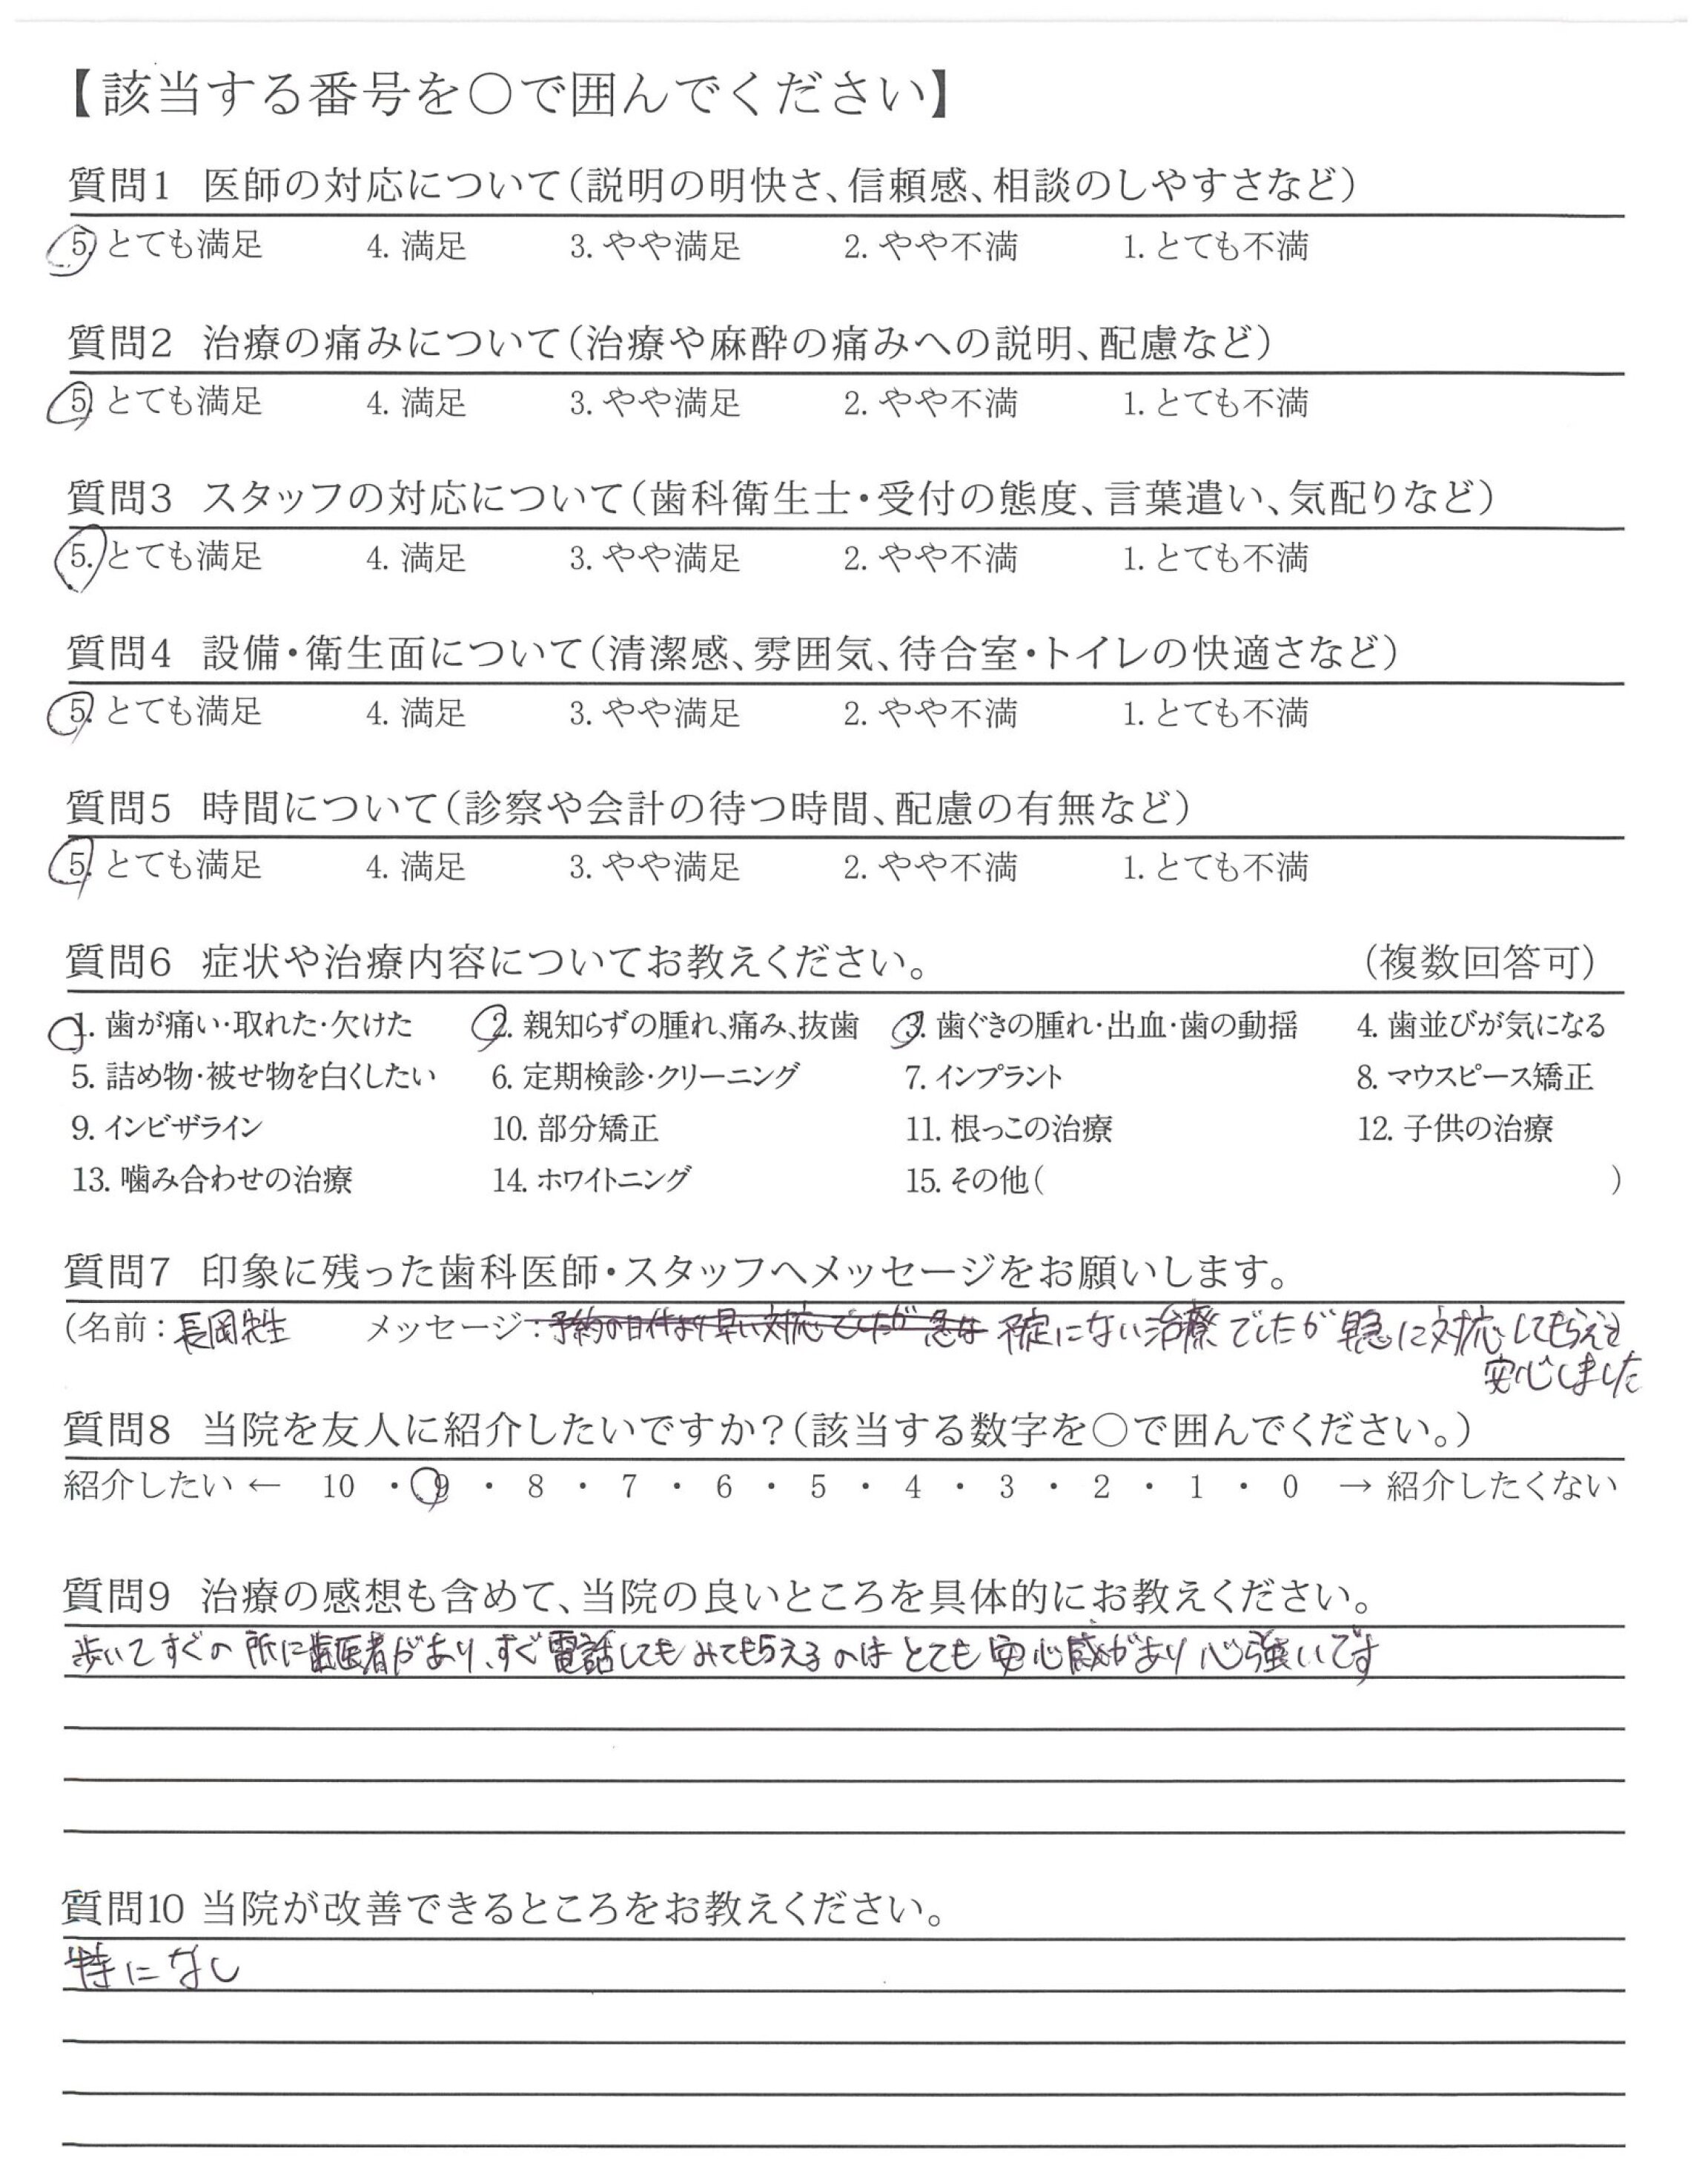 【該当する番号を〇で囲んでください】
質問1 医師の対応について(説明の明快さ、信頼感、相談のしやすさなど)
5. とても満足 4. 満足 3. やや満足 2. やや不満 1. とても不満
質問2 治療の痛みについて(治療や麻酔の痛みへの説明、配慮など)
5. とても満足 4. 満足 3. やや満足 2. やや不満 1. とても不満
質問3 スタッフの対応について(歯科衛生士・受付の態度、言葉遣い、気配りなど)
5. とても満足 4. 満足 3. やや満足 2. やや不満 1. とても不満
質問4 設備・衛生面について(清潔感、雰囲気、待合室・トイレの快適さなど)
5. とても満足 4. 満足 3. やや満足 2. やや不満 1. とても不満
質問5 時間について(診察や会計の待つ時間、配慮の有無など)
5. とても満足 4. 満足 3. やや満足 2. やや不満 1. とても不満
質問6 症状や治療内容についてお教えください。 (複数回答可)
1. 歯が痛い・取れた・欠けた 2. 親知らずの腫れ、痛み、抜歯 3. 歯ぐきの腫れ・出血・歯の動揺 4. 歯並びが気になる
5. 詰め物・被せ物を白くしたい 6. 定期検診・クリーニング 7. インプラント 8. マウスピース矯正
9. インビザライン 10. 部分矯正 11. 根っこの治療 12. 子供の治療
13. 噛み合わせの治療 14. ホワイトニング 15. その他( )
質問7 印象に残った歯科医師・スタッフへメッセージをお願いします。
(名前：長岡先生 メッセージ：予約の日件より早い対応でしたが 急な 予定にない治療でしたが 早急に対応してもらえ
安心しました
質問8 当院を友人に紹介したいですか？(該当する数字を〇で囲んでください。)
紹介したい ← 10 ・ 9 ・ 8 ・ 7 ・ 6 ・ 5 ・ 4 ・ 3 ・ 2 ・ 1 ・ 0 → 紹介したくない
質問9 治療の感想も含めて、当院の良いところを具体的にお教えください。
歩いてすぐの所に歯医者があり、すぐ電話してもみてもらえるのはとても安心感があり心強いです
質問10 当院が改善できるところをお教えください。
特になし